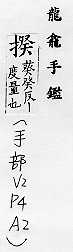 龍龕手鑑
揆葵癸反
度量也
(手部V2P4A2)